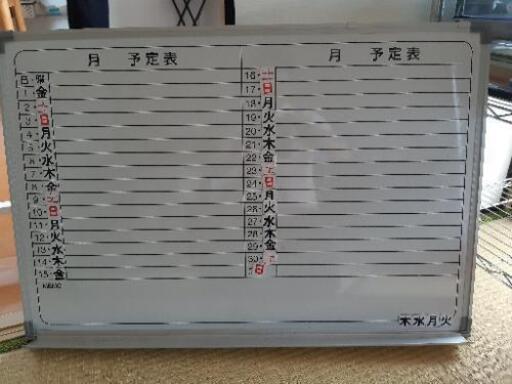 月 予定表
日 曜
1 金
2 土
3 日
4 月
5 火
6 水
7 木
8 金
9 土
10 日
11 月
12 火
13 水
14 木
15 金
MEMO
月 予定表
16 土
17 日
18 月
19 火
20 水
21 木
22 金
23 土
24 日
25 月
26 火
27 水
28 木
29 金
30 土
日
木水月火